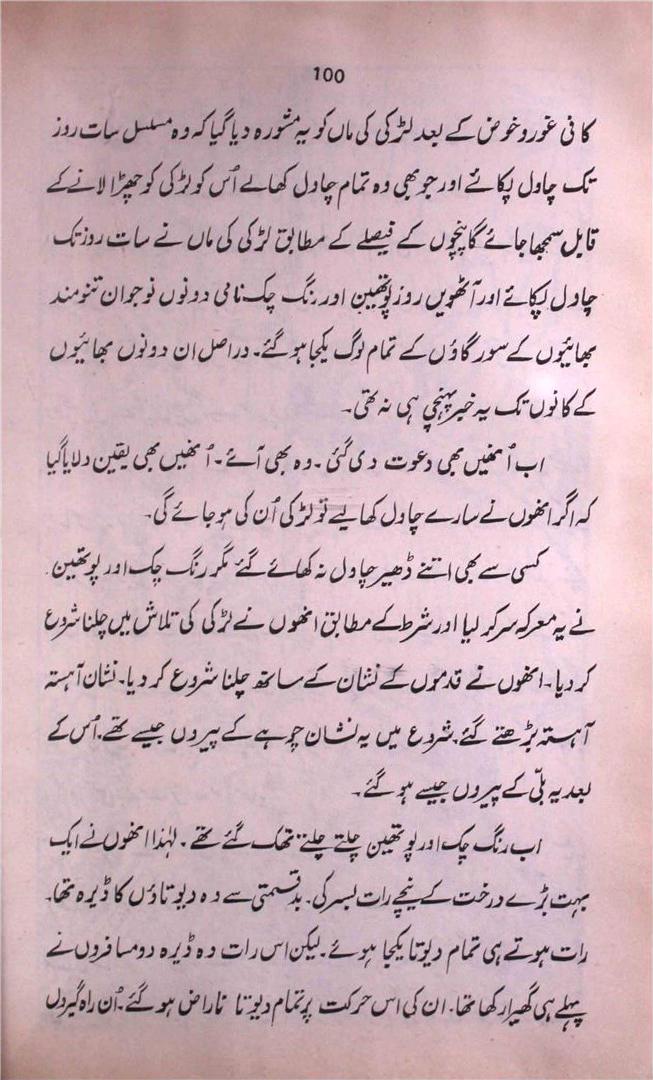 100
کافی غور و خوض کے بعد لڑکی کی ماں کو یہ مشورہ دیا گیا کہ وہ مسلسل سات روز
تک چاول پکائے اور جو بھی وہ تمام چاول کھالے اُس کو لڑکی کو چھڑا لانے کے
قابل سمجھا جائے گا پنچوں کے فیصلے کے مطابق لڑکی کی ماں نے سات روز تک
چاول پکائے اور آٹھویں روز پوتھین اور رنگ چک نامی دونوں نوجوان تنومند
بھائیوں کے سور گاؤں کے تمام لوگ یکجا ہو گئے۔ دراصل ان دونوں بھائیوں
کے کانوں تک یہ خبر پہنچی ہی نہ تھی۔
اب اُنھیں بھی دعوت دی گئی ۔ وہ بھی آئے ۔ اُنھیں بھی یقین دلایا گیا
کہ اگر انھوں نے سارے چاول کھا لیے تو لڑکی اُن کی ہو جائے گی۔
کسی سے بھی اتنے ڈھیر چاول نہ کھائے گئے مگر رنگ چک اور پوتھین
نے یہ معرکہ سر کر لیا اور شرط کے مطابق انھوں نے لڑکی کی تلاش میں چلنا شروع
کر دیا۔ انھوں نے قدموں کے نشان کے ساتھ چلنا شروع کر دیا۔ نشان آہستہ
آہستہ بڑھتے گئے۔ شروع میں یہ نشان چوہے کے پیروں جیسے تھے۔ اُس کے
بعد یہ بلّی کے پیروں جیسے ہو گئے ۔
اب رنگ چک اور پوتھین چلتے چلتے تھک گئے تھے ۔ لہٰذا انھوں نے ایک
بہت بڑے درخت کے نیچے رات بسر کی۔ بدقسمتی سے وہ دیوتاؤں کا ڈیرہ تھا۔
رات ہوتے ہی تمام دیوتا یکجا ہوئے۔ لیکن اس رات وہ ڈیرہ دو مسافروں نے
پہلے ہی گھیرا رکھا تھا۔ ان کی اس حرکت پر تمام دیوتا ناراض ہو گئے۔ اُن راہ گیروں